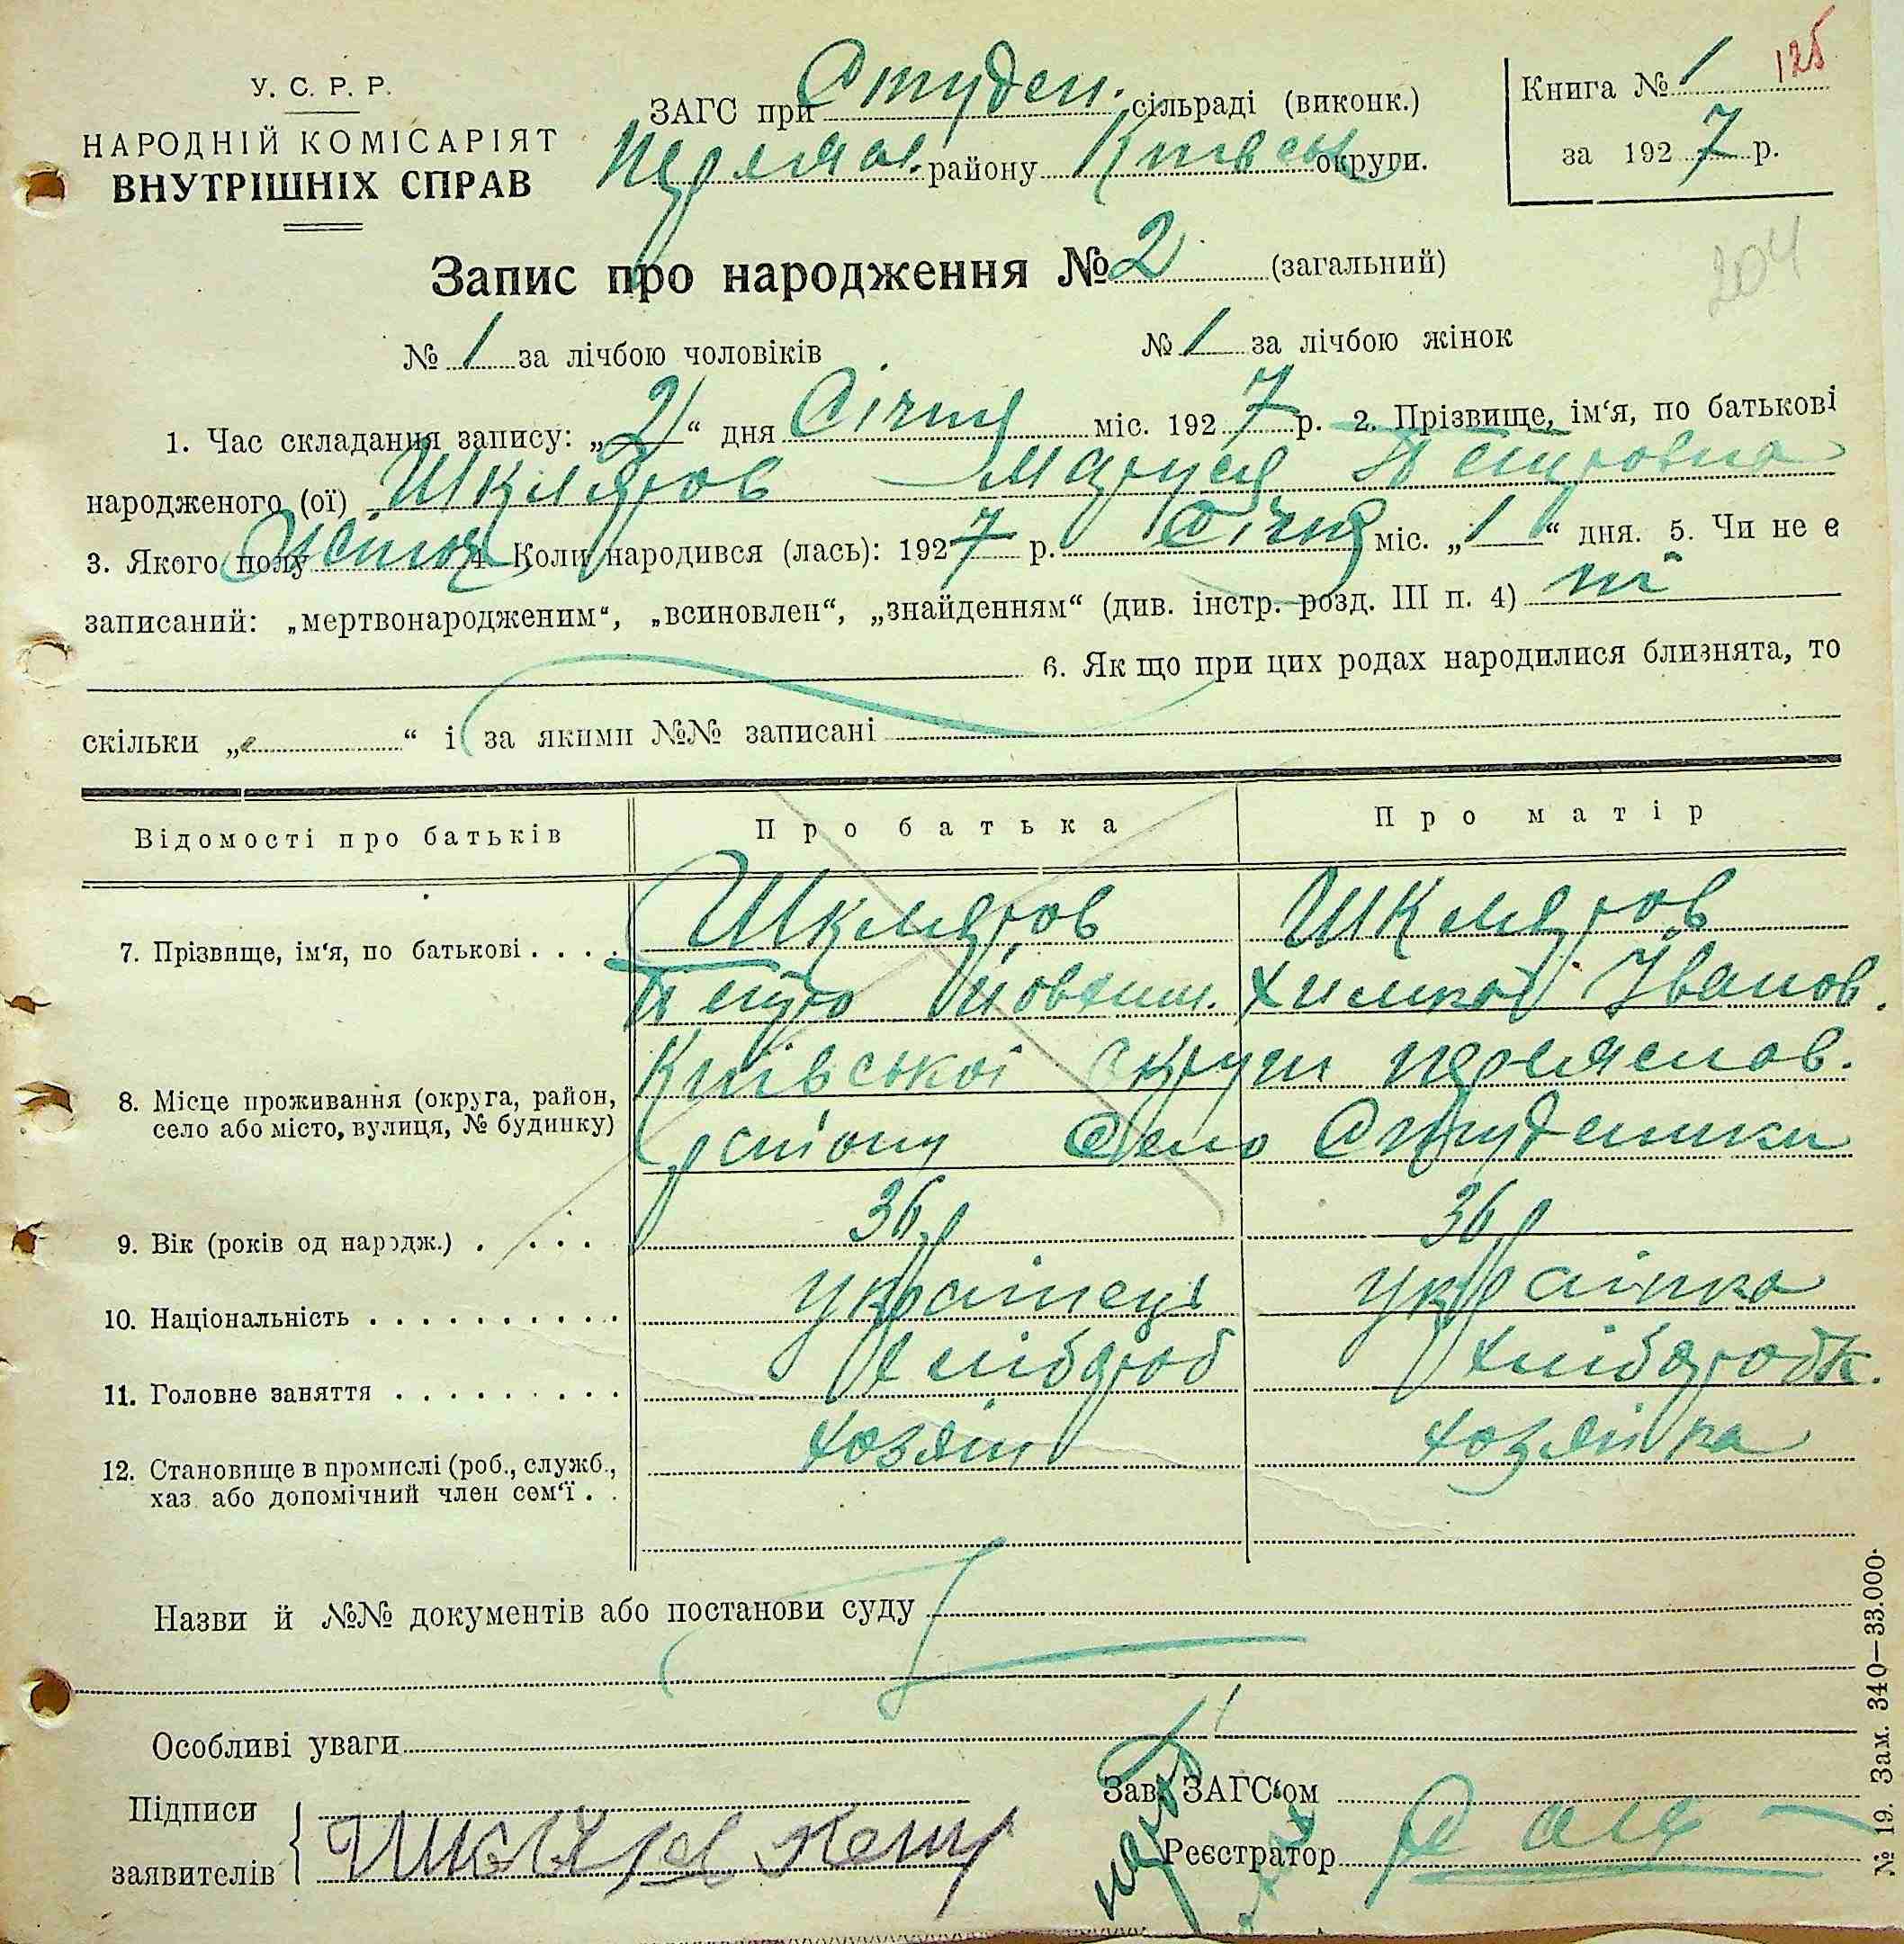 У. С. Р. Р.
НАРОДНІЙ КОМІСАРІЯТ
ВНУТРІШНІХ СПРАВ
ЗАГС при Студен. сільраді (виконк.)
Переяслав. району Київськ округи.
Книга № 1 125
за 1927 р.
Запис про народження № 2 (загальний)
204
№ 1 за лічбою чоловіків № 1 за лічбою жінок
1. Час складання запису: „2“ дня Січня міс. 1927 р. 2. Прізвище, ім‘я, по батькові
народженого (ої) Шкляров Маруся Петровна
3. Якого полу Жіноч 4. Коли народився (лась): 1927 р. Січня міс. „1“ дня. 5. Чи не є
записаний: „мертвонародженим“, „всиновлен“, „знайденням“ (див. інстр. розд. III п. 4) ні
6. Як що при цих родах народилися близнята, то
скільки „ “ і за якими №№ записані
Відомості про батьків Про батька Про матір
7. Прізвище, ім‘я, по батькові . . . . Шкляров Шкляров
Петро Іванов.
8. Місце проживання (округа, район, Київської округи Переяслов.
село або місто, вулиця, № будинку) району Село Студеники
9. Вік (років од народж.) . . . . . 36 р 36 р
10. Національність . . . . . . . . . . українець українка
11. Головне заняття . . . . . . . . . . хлібороб хліборобк.
12. Становище в промислі (роб., служб., хозяїн хозяйка
хаз. або допомічний член сем‘ї . .
Назви й №№ документів або постанови суду
Особливі уваги
Підписи
заявителів Шкляров Петр
Зав. ЗАГС‘ом
Реєстратор
№ 19. Зам. 340—33.000.